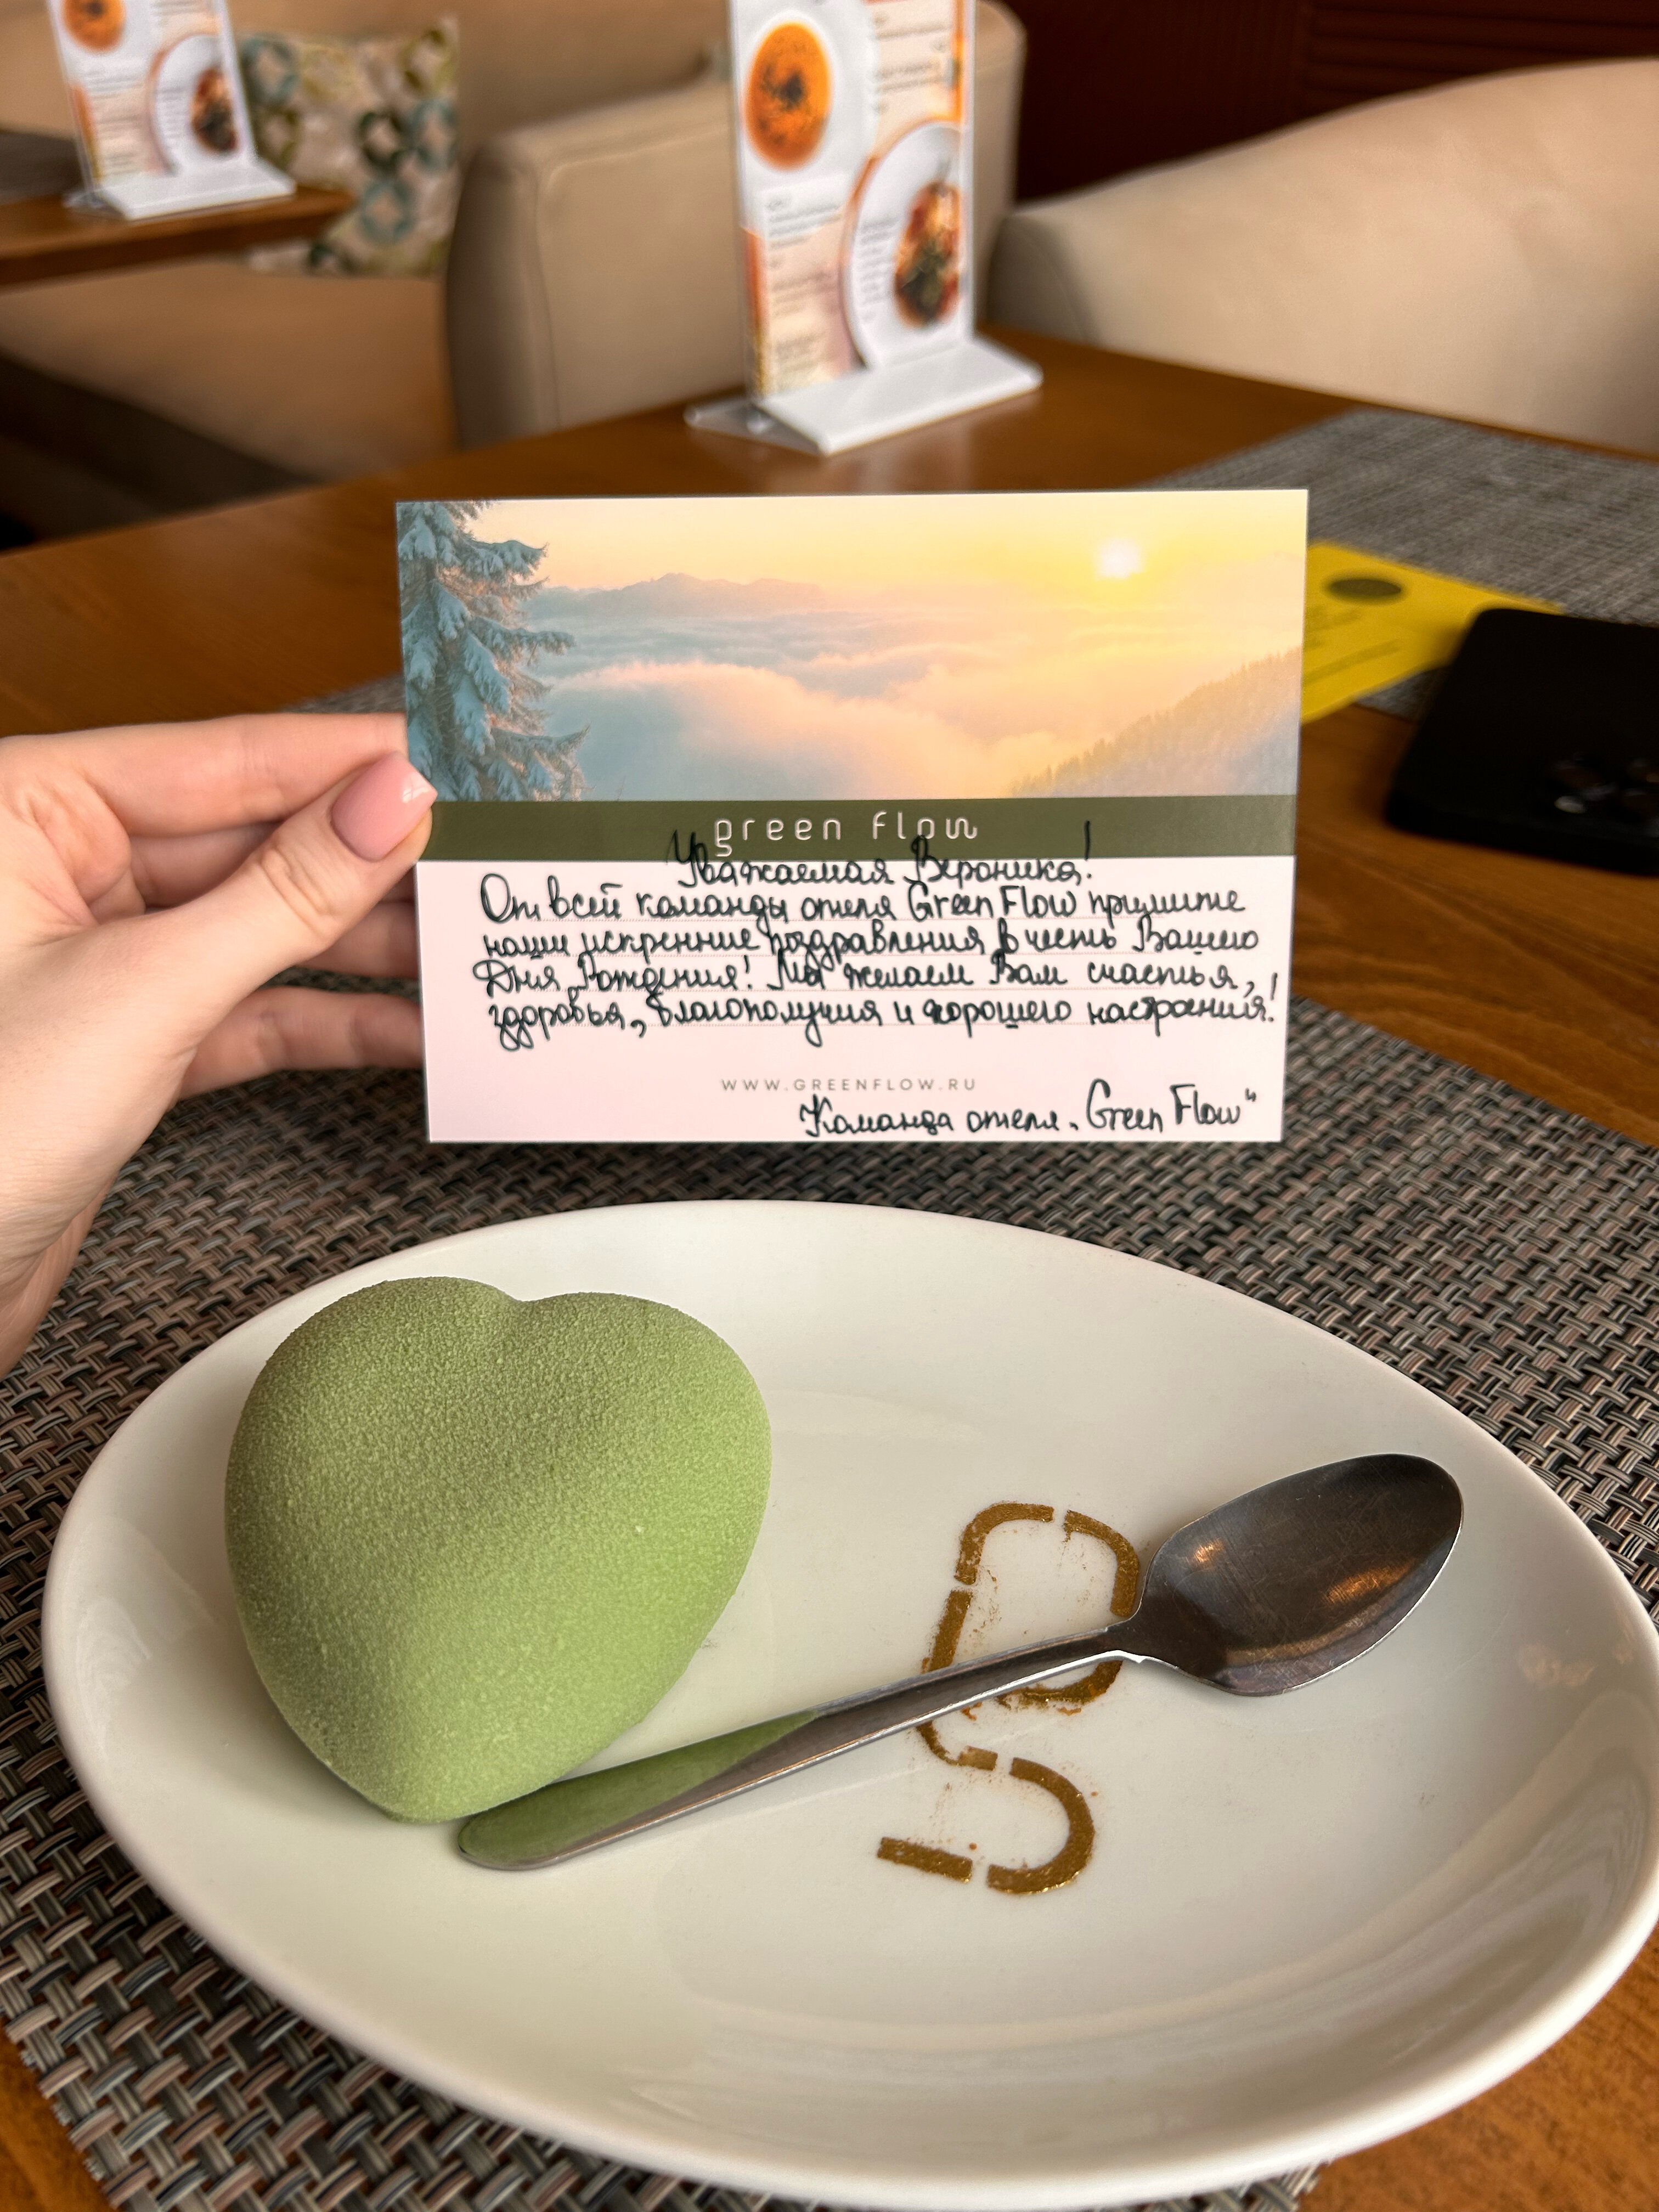 green flow
Уважаемая Вероника!
От всей команды отеля Green Flow примите
наши искренние поздравления в честь Вашего
Дня Рождения! Мы желаем Вам счастья,
здоровья, благополучия и хорошего настроения!
WWW.GREENFLOW.RU
Команда отеля „Green Flow“